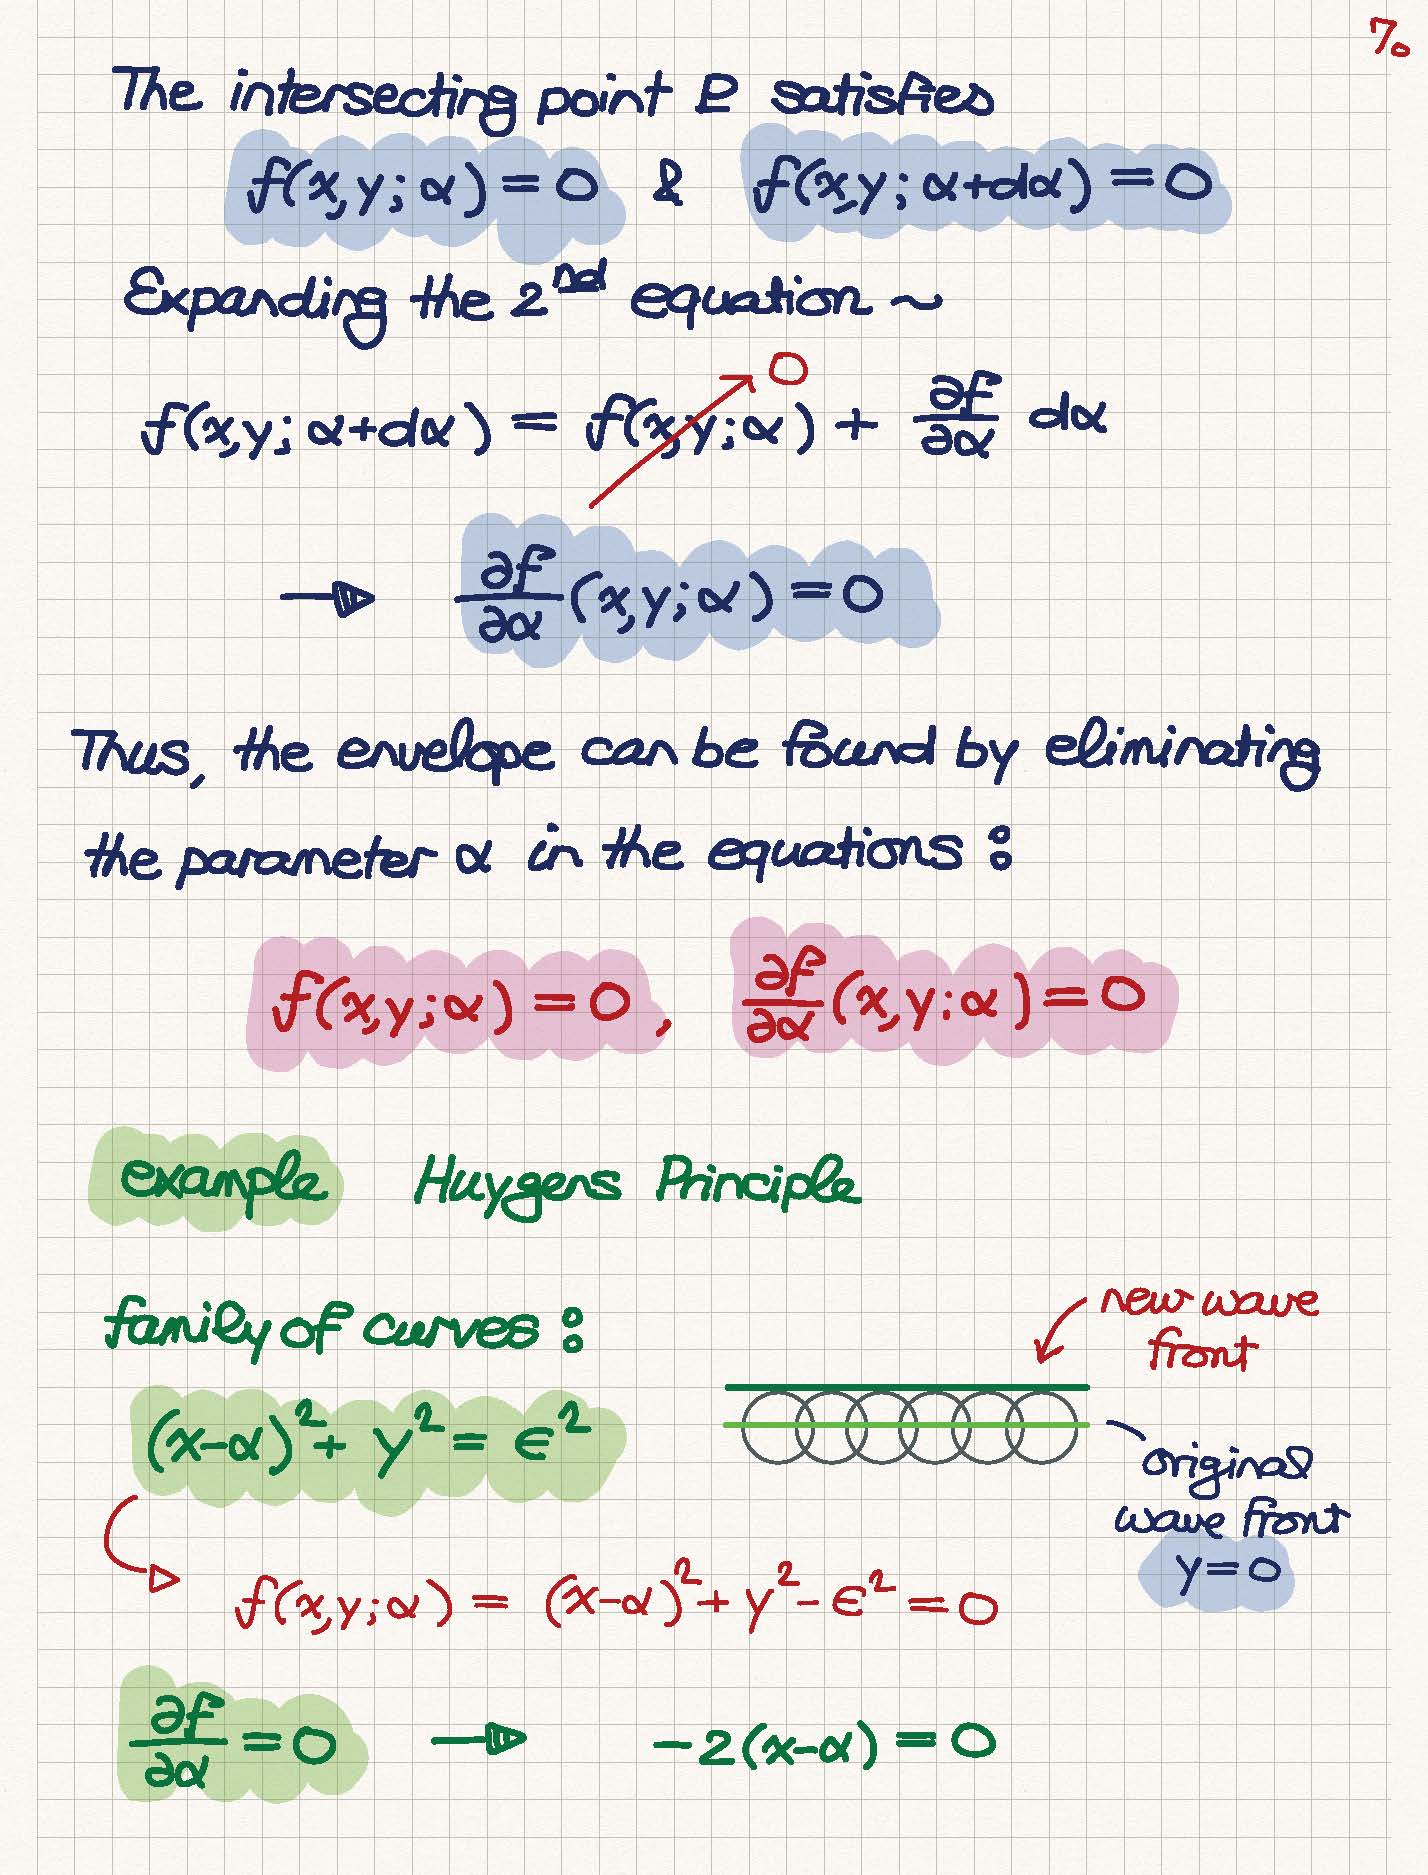 7.
The intersecting point P satisfies
f(x,y; α) = 0 & f(x,y; α+dα) = 0
Expanding the 2nd equation ~
0
f(x,y; α+dα) = f(x,y; α) + ∂f/∂α dα
∂f/∂α (x,y; α) = 0
Thus, the envelope can be found by eliminating
the parameter α in the equations :
f(x,y; α) = 0, ∂f/∂α (x,y; α) = 0
example Huygens Principle
family of curves :
(x-α)² + y² = ϵ²
new wave
front
original
wave front
y = 0
f(x,y; α) = (x-α)² + y² - ϵ² = 0
∂f/∂α = 0 → -2(x-α) = 0